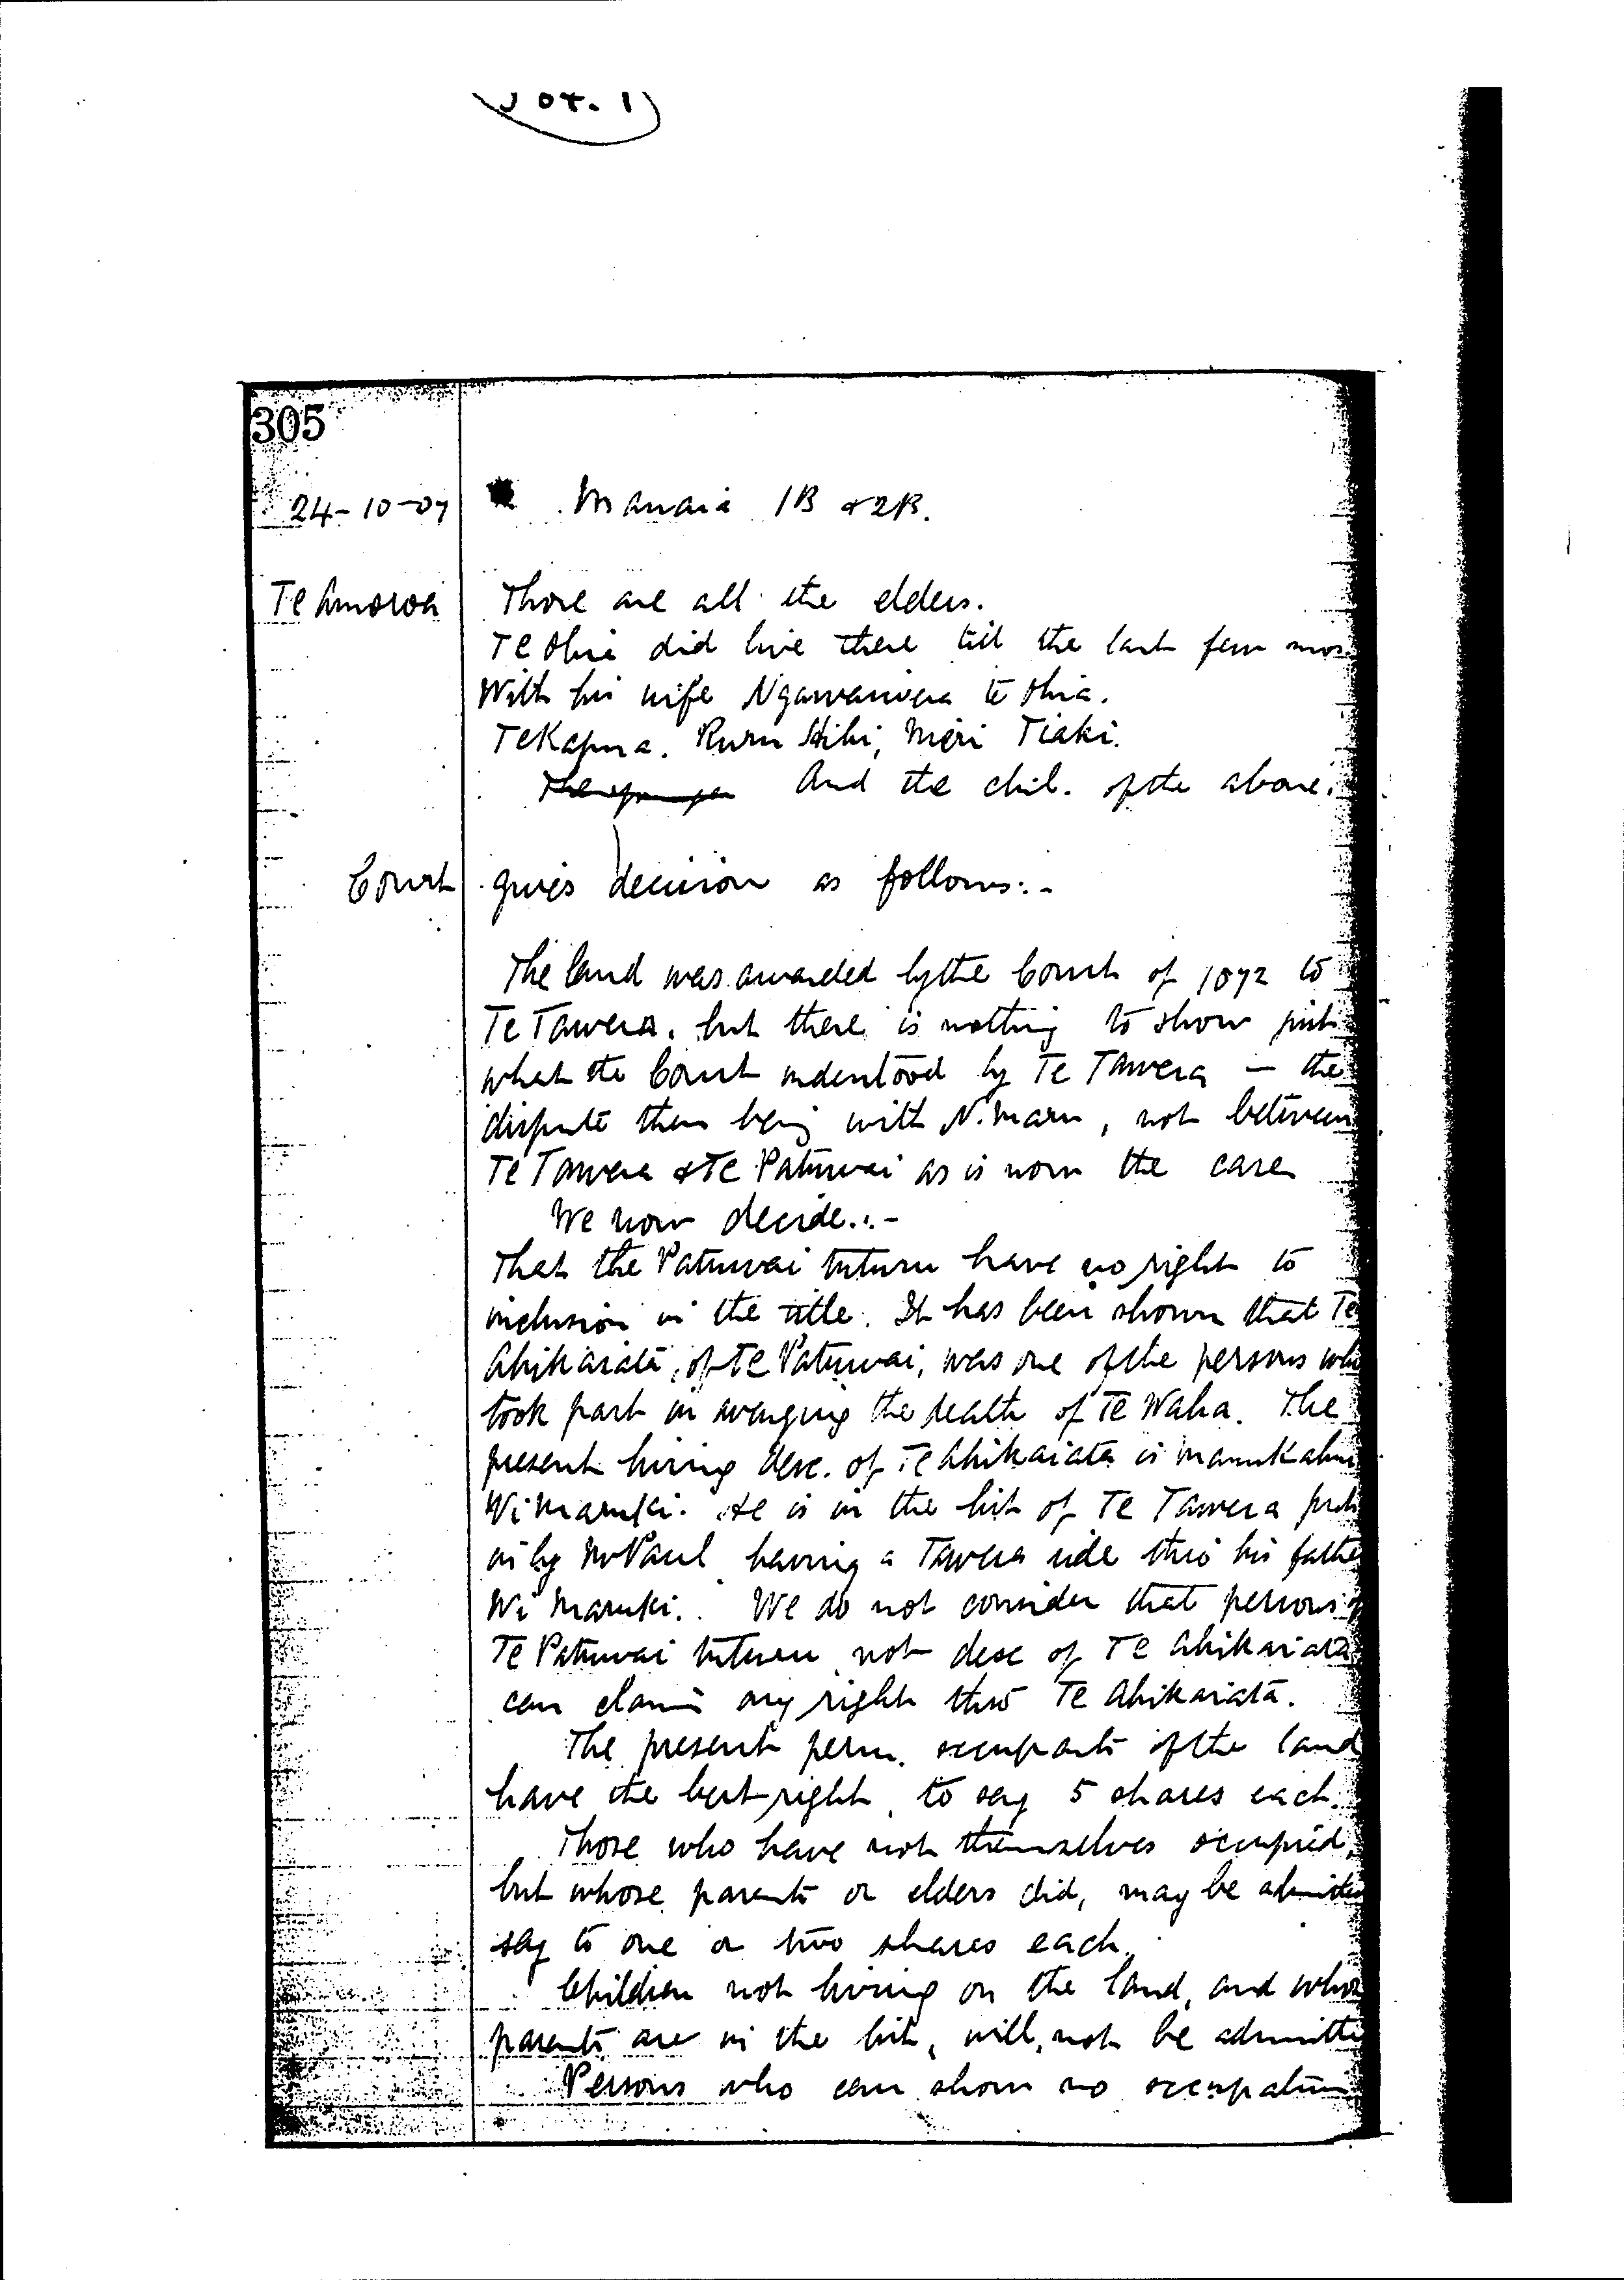 305
24-10-07 Manaia 1B & 2B.
Te Amoroa Those are all the elders.
Te Ohia did live there till the last few mos.
With his wife Ngawaiwera te Ohia.
Te Kapua. Ruru Hihi, Meri Tiaki.
And the chil. of the above.
Court gives decision as follows:-
The land was awarded by the Court of 1872 to
Te Tawera, but there is nothing to show just
what the Court understood by Te Tawera — the
dispute then being with N. Maru, not between
Te Tawera & Te Patuwai as is now the case
We now decide:-
That the Patuwai tuturu have no right to
inclusion in the title. It has been shown that Te
Ahikaiata, of Te Patuwai, was one of the persons who
took part in avenging the death of Te Waha. The
present living desc. of Te Ahikaiata is Manukahu
Wi Maruki. He is in the list of Te Tawera put
in by Mr Paul having a Tawera side thro his father
Wi Maruki. We do not consider that persons of
Te Patuwai tuturu not desc of Te Ahikaiata
can claim any right thro Te Ahikaiata.
The present perm. occupants of the land
have the best right, to say 5 shares each.
Those who have not themselves occupied,
but whose parents or elders did, may be admitted
say to one or two shares each.
Children not living on the land, and whose
parents are in the list, will not be admitted
Persons who can show no occupation